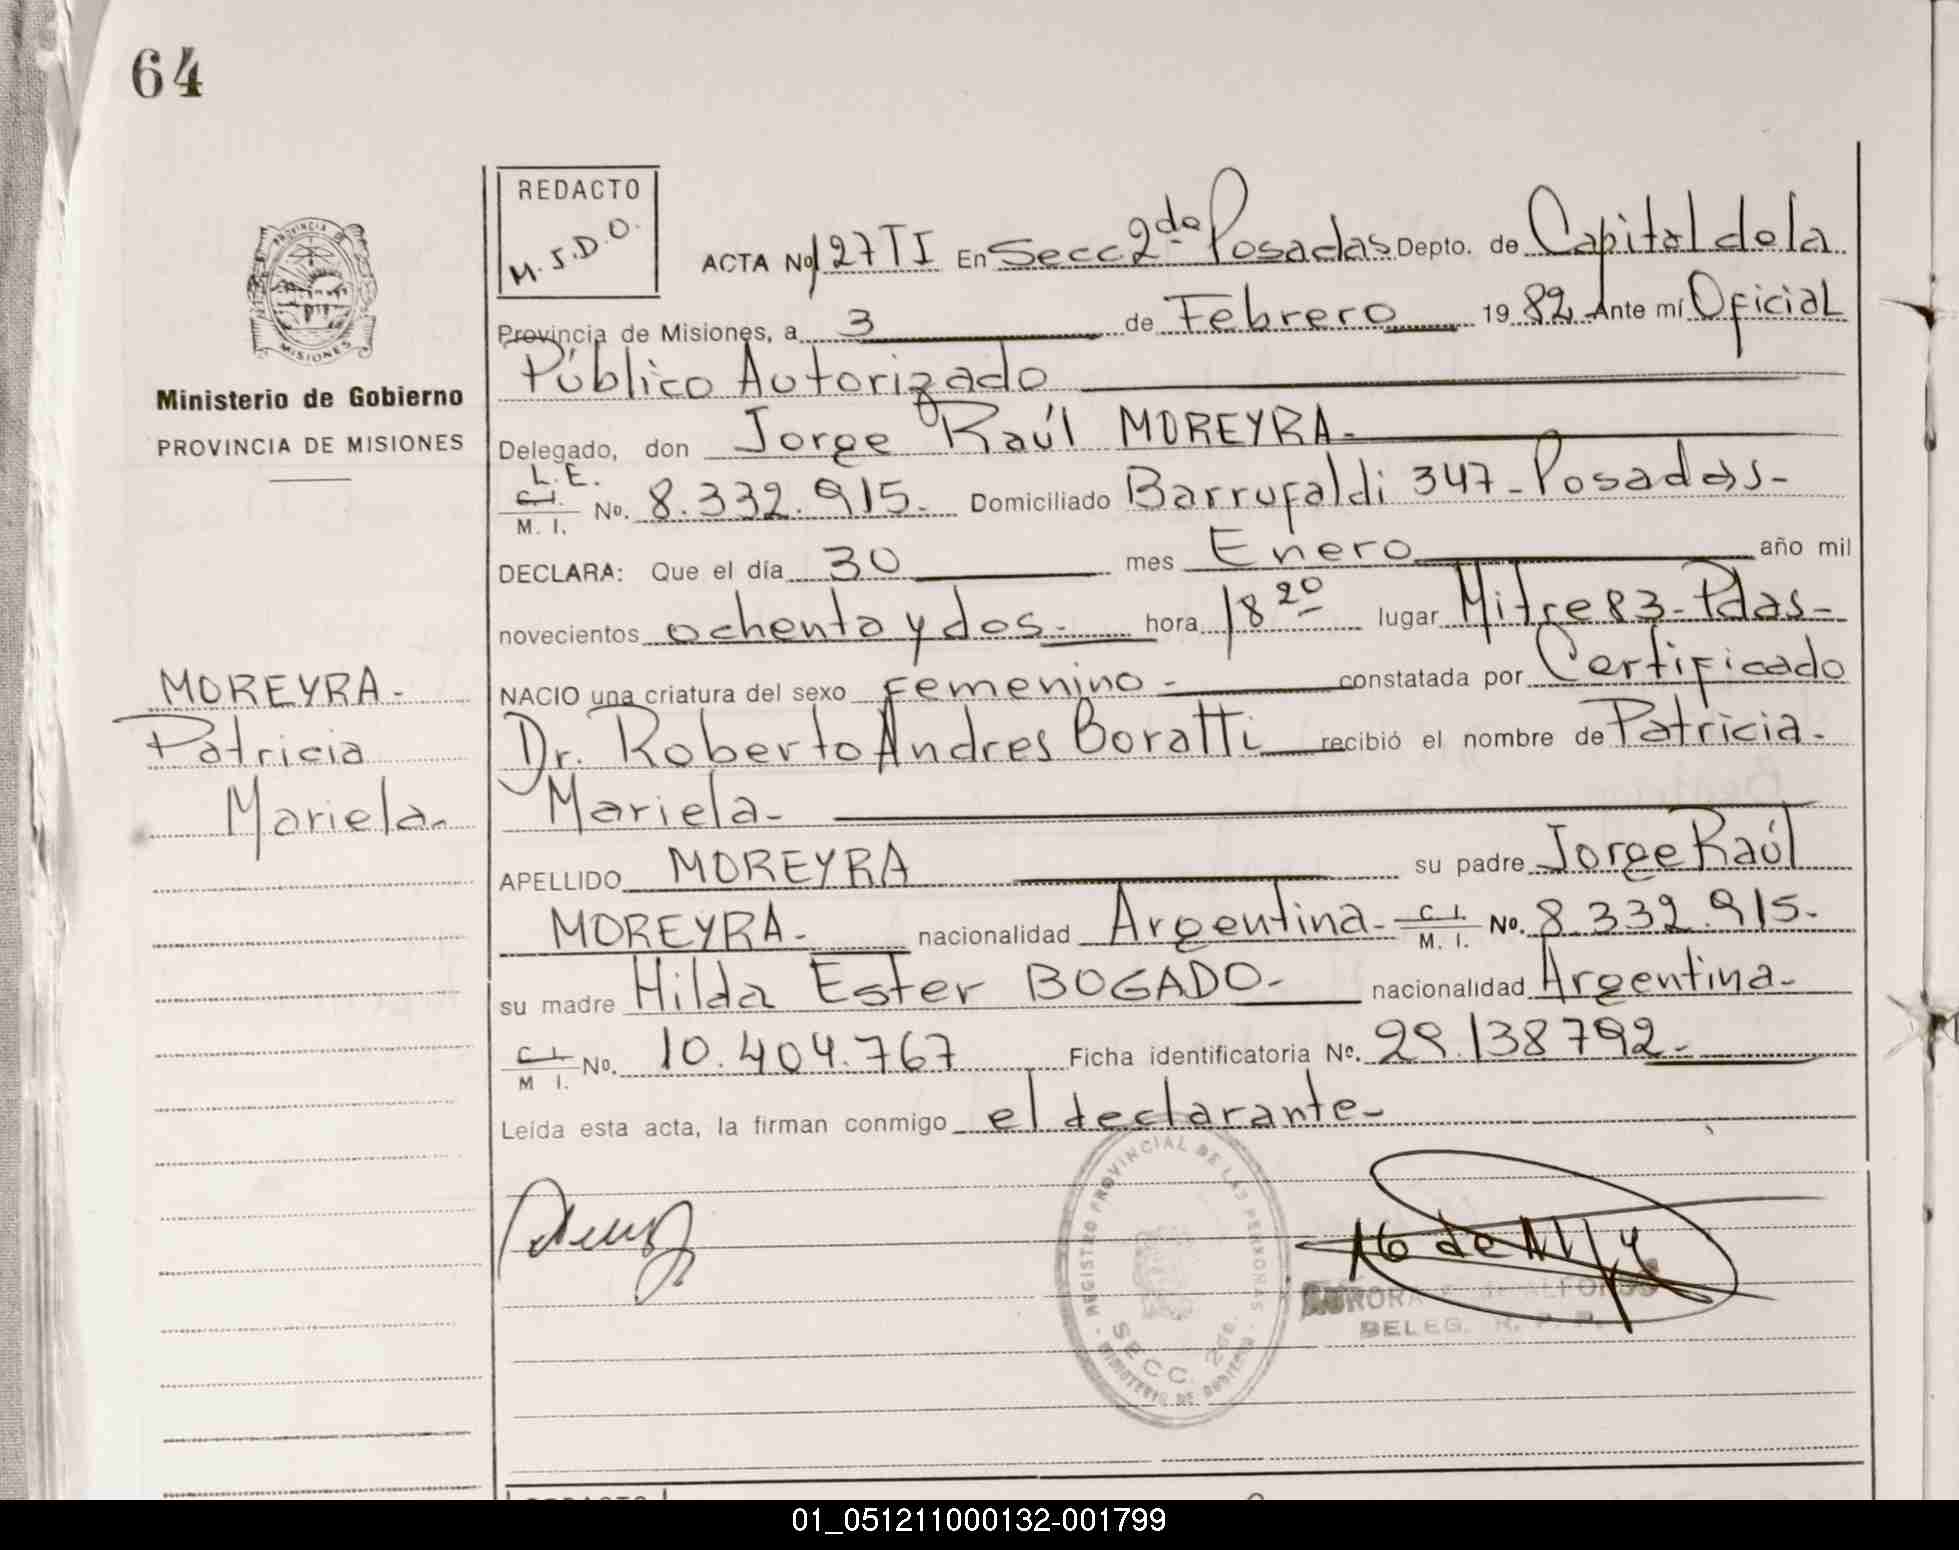 64
REDACTO
M.S.D.O.
PROVINCIA DE
MISIONES
Ministerio de Gobierno
PROVINCIA DE MISIONES
ACTA No 127 TI En Secc 2da Posadas Depto. de Capital de la
Provincia de Misiones, a 3 de Febrero 1982 Ante mí Oficial
Público Autorizado
Delegado, don Jorge Raúl MOREYRA-
L.E.
C.I.
M. I. No. 8.332.915. Domiciliado Barrufaldi 347-Posadas-
DECLARA: Que el día 30 mes Enero año mil
novecientos ochenta y dos- hora 18 20 lugar Mitre 83-Pdas-
MOREYRA-
Patricia
Mariela-
NACIO una criatura del sexo femenino- constatada por Certificado
Dr. Roberto Andres Boratti recibió el nombre de Patricia-
Mariela-
APELLIDO MOREYRA su padre Jorge Raúl
MOREYRA- nacionalidad Argentina- C.I. M. I. No. 8.332.915-
su madre Hilda Ester BOGADO- nacionalidad Argentina-
C.I. M I. No. 10.404.767 Ficha identificatoria No. 29.138792-
Leída esta acta, la firman conmigo el declarante-
REGISTRO PROVINCIAL DE LAS PERSONAS
SECC. 2da.
MINISTERIO DE GOBIERNO
AURORA ALFONSO
DELEG. R. P. P.
REDACTO
01_051211000132-001799